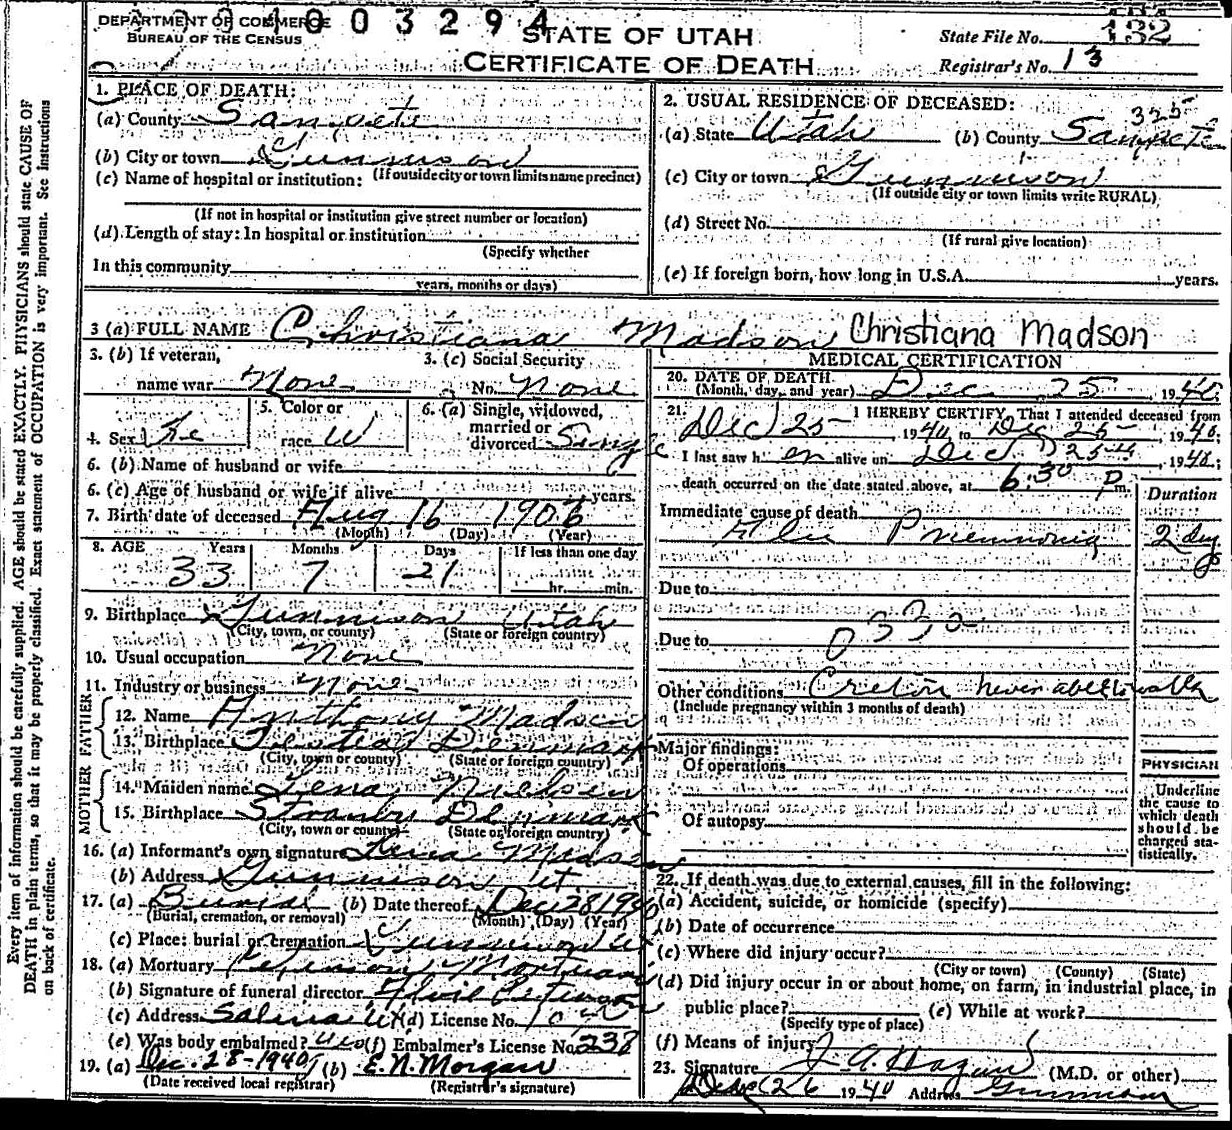 DEPARTMENT OF COMMERCE
BUREAU OF THE CENSUS
1003294
STATE OF UTAH
CERTIFICATE OF DEATH
State File No. 132
Registrar's No. 13
Every item of information should be carefully supplied. AGE should be stated EXACTLY. PHYSICIANS should state CAUSE OF
DEATH in plain terms, so that it may be properly classified. Exact statement of OCCUPATION is very important. See instructions
on back of certificate.
1. PLACE OF DEATH:
(a) County Sanpete
(b) City or town Gunnison
(If outside city or town limits name precinct)
(c) Name of hospital or institution:
(If not in hospital or institution give street number or location)
(d) Length of stay: In hospital or institution
(Specify whether
In this community
years, months or days)
2. USUAL RESIDENCE OF DECEASED:
325
(a) State Utah (b) County Sanpete
(c) City or town Gunnison
(If outside city or town limits write RURAL)
(d) Street No.
(If rural give location)
(e) If foreign born, how long in U.S.A. years.
3 (a) FULL NAME Christiana Madson Christiana Madson
3. (b) If veteran, name war None
3. (c) Social Security No. None
4. Sex Fe
5. Color or race W
6. (a) Single, widowed, married or divorced Single
6. (b) Name of husband or wife
6. (c) Age of husband or wife if alive years.
7. Birth date of deceased Aug 16 1906
(Month) (Day) (Year)
8. AGE Years Months Days If less than one day
33 7 21 hr. min.
9. Birthplace Gunnison Utah
(City, town, or county) (State or foreign country)
10. Usual occupation None
11. Industry or business None
FATHER
12. Name Anthony Madsen
13. Birthplace Denmark
(City, town or county) (State or foreign country)
MOTHER
14. Maiden name Lena Nielsen
15. Birthplace Stranby Denmark
(City, town or county) (State or foreign country)
16. (a) Informant's own signature Lena Madsen
(b) Address Gunnison Ut.
17. (a) Burial (b) Date thereof Dec 28 1940
(Burial, cremation, or removal) (Month) (Day) (Year)
(c) Place: burial or cremation Gunnison Ut
18. (a) Mortuary Peterson Mortuary
(b) Signature of funeral director Peterson
(c) Address Salina Ut (d) License No.
(e) Was body embalmed? yes (f) Embalmer's License No. 238
19. (a) Dec. 28-1940 (b) E. N. Morgan
(Date received local registrar) (Registrar's signature)
MEDICAL CERTIFICATION
20. DATE OF DEATH
(Month, day, and year) Dec 25, 1940
21. I HEREBY CERTIFY, That I attended deceased from
Dec 25 1940 to Dec 25 1940;
I last saw her alive on Dec 25th, 1940;
death occurred on the date stated above, at 6:30 Pm.
Duration
Immediate cause of death
Flu Pneumonia 2 day
Due to
Due to
Other conditions Cretin never able to walk
(Include pregnancy within 3 months of death)
Major findings:
Of operations
Of autopsy
PHYSICIAN
Underline
the cause to
which death
should be
charged sta-
tistically.
22. If death was due to external causes, fill in the following:
(a) Accident, suicide, or homicide (specify)
(b) Date of occurrence
(c) Where did injury occur?
(City or town) (County) (State)
(d) Did injury occur in or about home, on farm, in industrial place, in
public place? (e) While at work?
(Specify type of place)
(f) Means of injury
23. Signature J. A. Hagan (M.D. or other)
Dec 26 1940 Address Gunnison